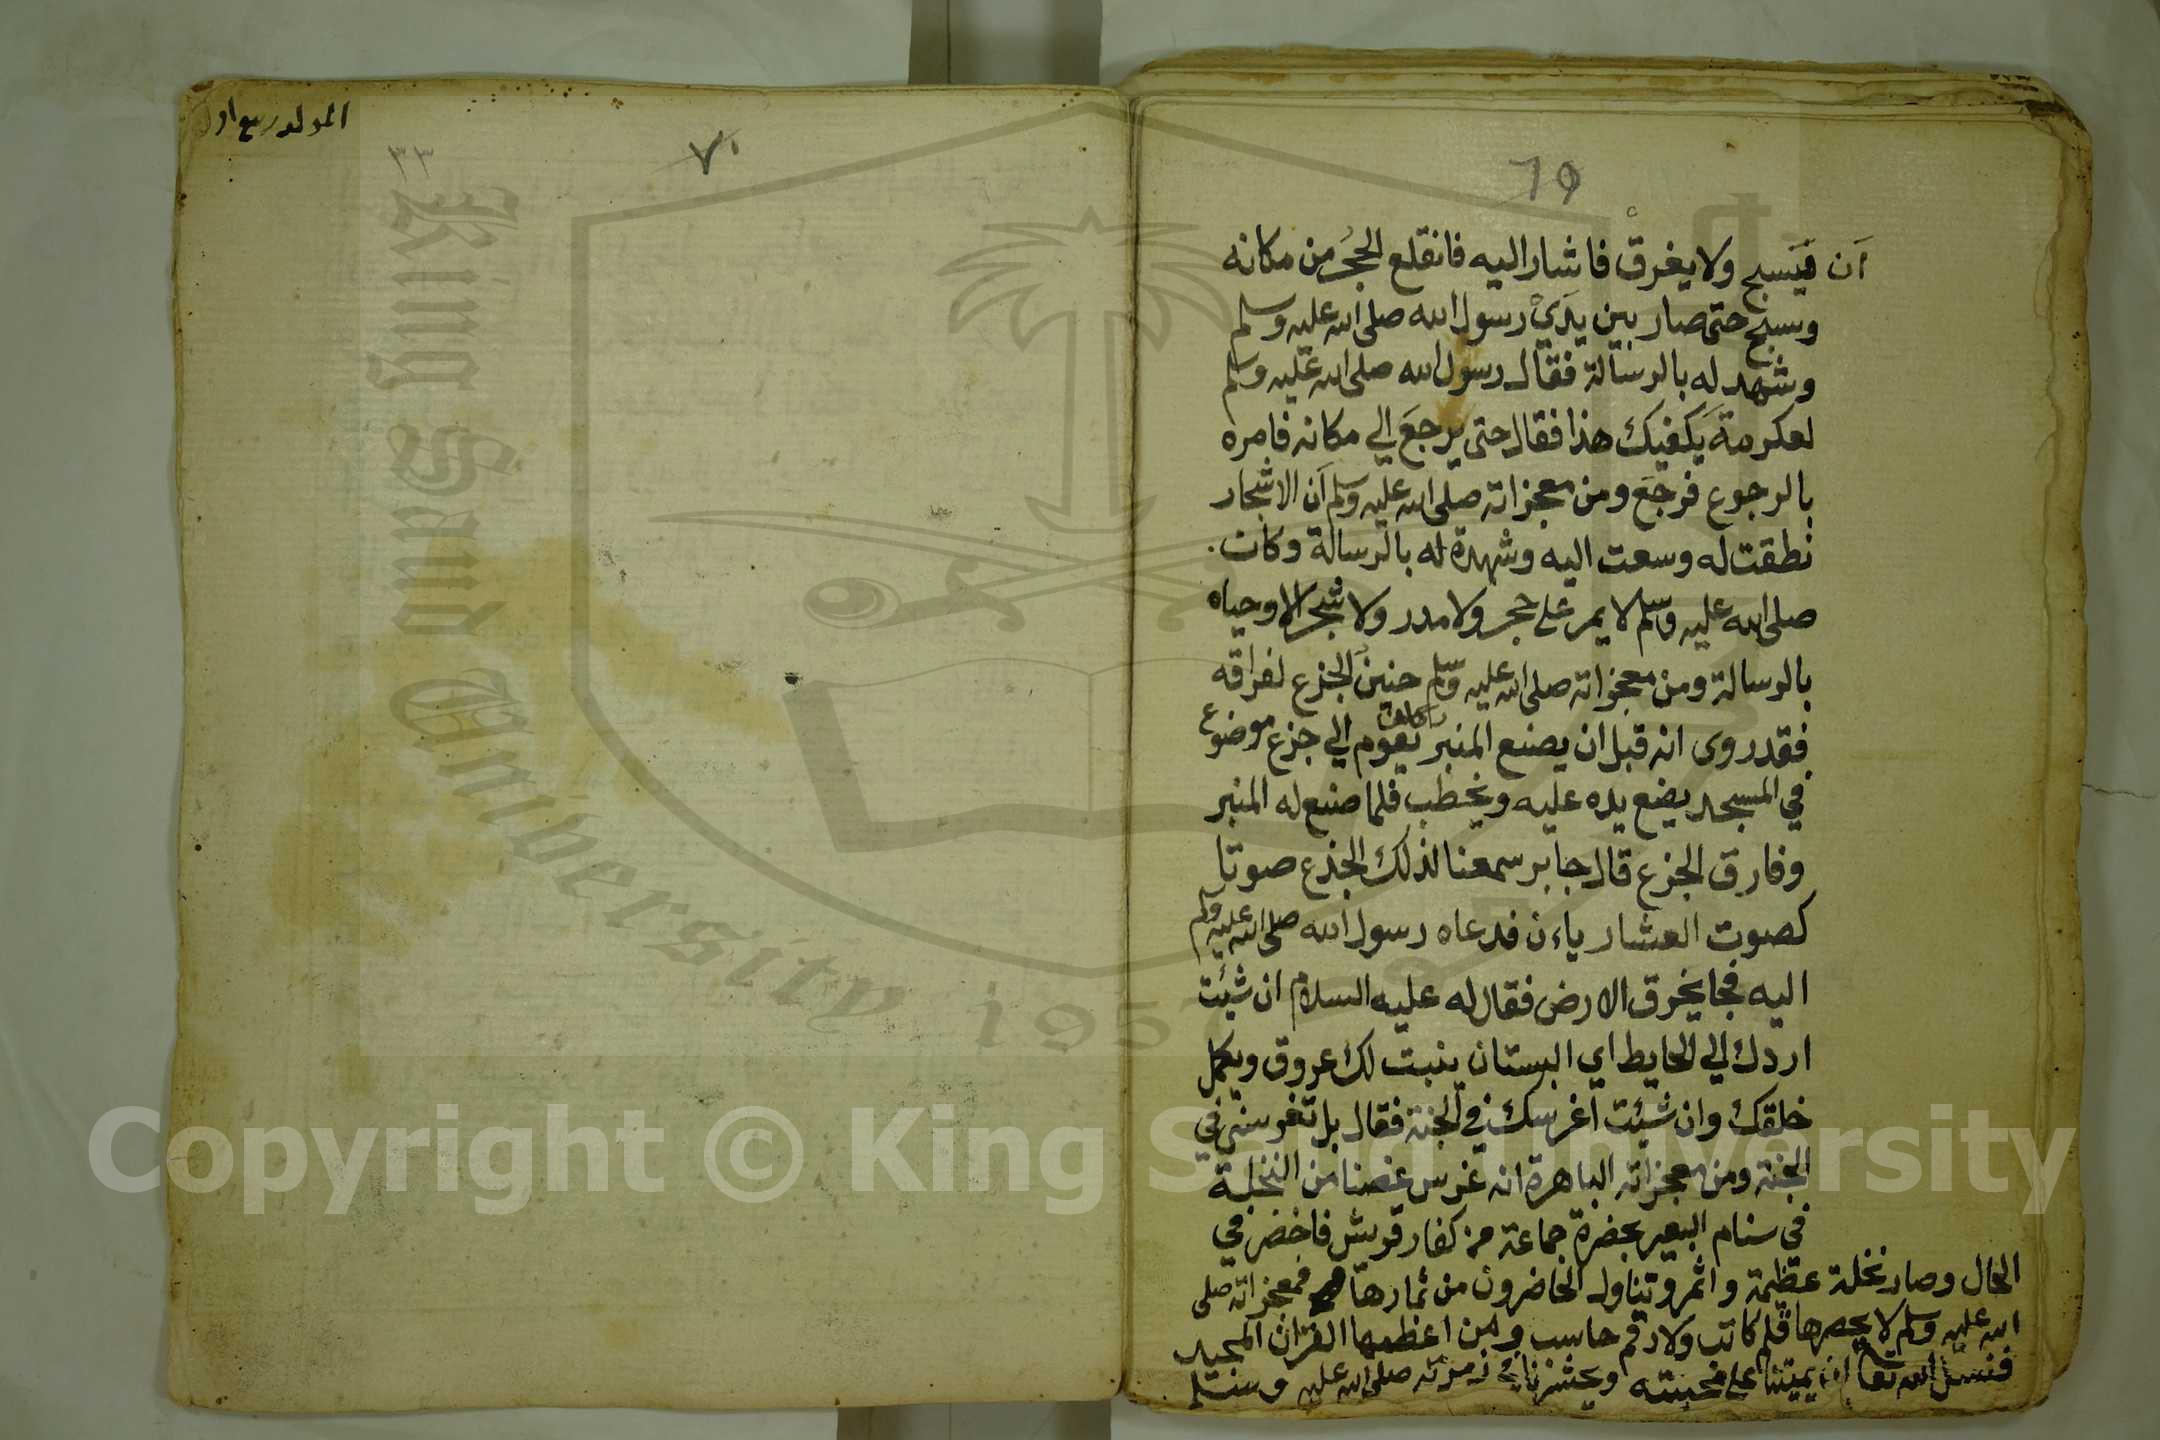 69
أن فيسبح ولا يغرق فاشار اليه فانقلع الحجر من مكانه
وسبح حتى صار بين يدي رسول الله صلى الله عليه وسلم
وشهد له بالرسالة فقال رسول الله صلى الله عليه وسلم
لعكرمة يكفيك هذا فقال حتى يرجع الي مكانه فامره
بالرجوع فرجع ومن معجزاته صلى الله عليه وسلم أن الاشجار
نطقت له وسعت اليه وشهدة له بالرسالة وكان
صلى الله عليه وسلم لا يمر على حجر ولا مدر ولا شجر الا وحياه
بالرسالة ومن معجزاته صلى الله عليه وسلم حنين الجزع لفراقه
فقد روى انه قبل ان يصنع المنبر كان يقوم الي جزع موضوع
في المسجد يضع يده عليه ويخطب فلما صنع له المنبر
وفارق الجزع قال جابر سمعنا لذلك الجذع صوتا
كصوت العشار ياءن فدعاه رسول الله صلى الله عليه وسلم
اليه فجا يخرق الارض فقال له عليه السلام ان شئت
اردك الي الحايط اي البستان ينبت لك عروق ويكمل
خلقك وان شئت اغرسك في الجنة فقال بل تغرسني في
الجنة ومن معجزاته الباهرة انه غرس غصنا من النخلة
في سنام البعير بحضرة جماعة من كفار قريش فاخضر في
الحال وصار نخلة عظيمة واثمر وتناول الحاضرون من ثمارها فمعجزاته صلى
الله عليه وسلم لا يحصرها قلم كاتب ولا رقم حاسب ومن اعظمها القران المجيد
فنسئل الله تعالى ان يميتنا على محبته ويحشرنا في زمرته صلى الله عليه وسلم
المولد ربيع اول
٣٣
٧٠
King Saud University 1957
Copyright © King Saud University